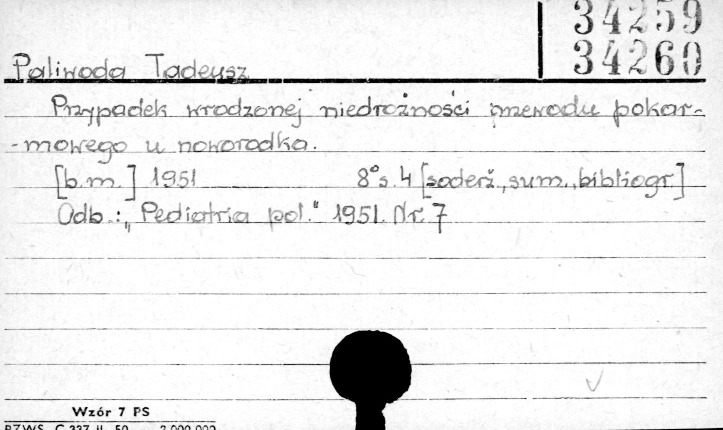 34259
34260
Paliwoda Tadeusz
Przypadek wrodzonej niedrożności przewodu pokar-
-mowego u noworodka.
[b.m.] 1951 8° s. 4 [soderž., sum., bibliogr.]
Odb.: „Pediatria pol." 1951. Nr. 7
Wzór 7 PS
PZWS. C 337 II. 50 2.000.000